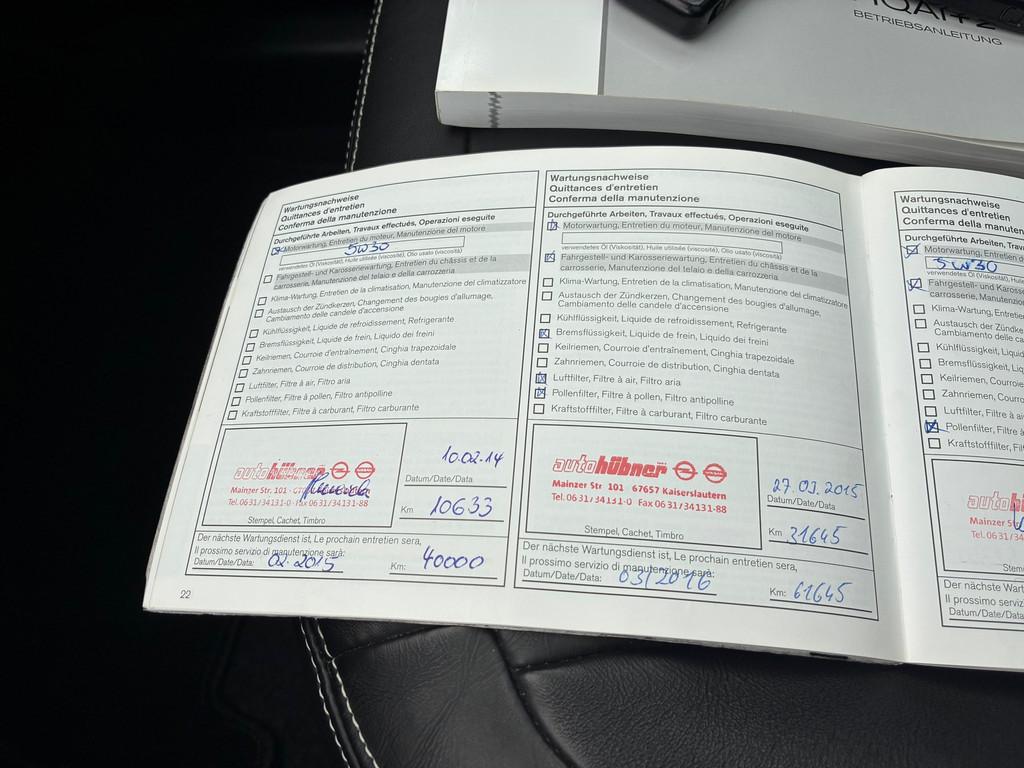 BETRIEBSANLEITUNG
Wartungsnachweise
Quittances d'entretien
Conferma della manutenzione
Durchgeführte Arbeiten, Travaux effectués, Operazioni eseguite
Motorwartung, Entretien du moteur, Manutenzione del motore
5W30
verwendetes Öl (Viskosität), Huile utilisée (viscosité), Olio usato (viscosità)
Fahrgestell- und Karosseriewartung, Entretien du châssis et de la
carrosserie, Manutenzione del telaio e della carrozzeria
Klima-Wartung, Entretien de la climatisation, Manutenzione del climatizzatore
Austausch der Zündkerzen, Changement des bougies d'allumage,
Cambiamento delle candele d'accensione
Kühlflüssigkeit, Liquide de refroidissement, Refrigerante
Bremsflüssigkeit, Liquide de frein, Liquido dei freini
Keilriemen, Courroie d'entraînement, Cinghia trapezoidale
Zahnriemen, Courroie de distribution, Cinghia dentata
Luftfilter, Filtre à air, Filtro aria
Pollenfilter, Filtre à pollen, Filtro antipolline
Kraftstofffilter, Filtre à carburant, Filtro carburante
autohübner
Mainzer Str. 101
Tel. 0631/34131-0 Fax 0631/34131-88
Stempel, Cachet, Timbro
10.02.14
Datum/Date/Data
Km 10633
Der nächste Wartungsdienst ist, Le prochain entretien sera,
Il prossimo servizio di manutenzione sarà:
Datum/Date/Data: 02.2015 Km: 40000
22
Wartungsnachweise
Quittances d'entretien
Conferma della manutenzione
Durchgeführte Arbeiten, Travaux effectués, Operazioni eseguite
Motorwartung, Entretien du moteur, Manutenzione del motore
verwendetes Öl (Viskosität), Huile utilisée (viscosité), Olio usato (viscosità)
Fahrgestell- und Karosseriewartung, Entretien du châssis et de la
carrosserie, Manutenzione del telaio e della carrozzeria
Klima-Wartung, Entretien de la climatisation, Manutenzione del climatizzatore
Austausch der Zündkerzen, Changement des bougies d'allumage,
Cambiamento delle candele d'accensione
Kühlflüssigkeit, Liquide de refroidissement, Refrigerante
Bremsflüssigkeit, Liquide de frein, Liquido dei freini
Keilriemen, Courroie d'entraînement, Cinghia trapezoidale
Zahnriemen, Courroie de distribution, Cinghia dentata
Luftfilter, Filtre à air, Filtro aria
Pollenfilter, Filtre à pollen, Filtro antipolline
Kraftstofffilter, Filtre à carburant, Filtro carburante
autohübner
Mainzer Str. 101 67657 Kaiserslautern
Tel. 0631/34131-0 Fax 0631/34131-88
Stempel, Cachet, Timbro
27.03.2015
Datum/Date/Data
Km 31645
Der nächste Wartungsdienst ist, Le prochain entretien sera,
Il prossimo servizio di manutenzione sarà:
Datum/Date/Data: 03/2016 Km: 61645
Wartungsnachweise
Quittances d'entretien
Conferma della manuten
Durchgeführte Arbeiten, Trava
Motorwartung, Entretien du
5W30
verwendetes Öl (Viskosität), Huile
Fahrgestell- und Kaross
carrosserie, Manutenzion
Klima-Wartung, Entretie
Austausch der Zündke
Cambiamento delle ca
Kühlflüssigkeit, Liquid
Bremsflüssigkeit, Liq
Keilriemen, Courroie
Zahnriemen, Courro
Luftfilter, Filtre à ai
Pollenfilter, Filtre à
Kraftstofffilter, Fil
autohü
Mainzer Str
Tel. 0631/34
Stem
Der nächste War
Il prossimo serviz
Datum/Date/Data